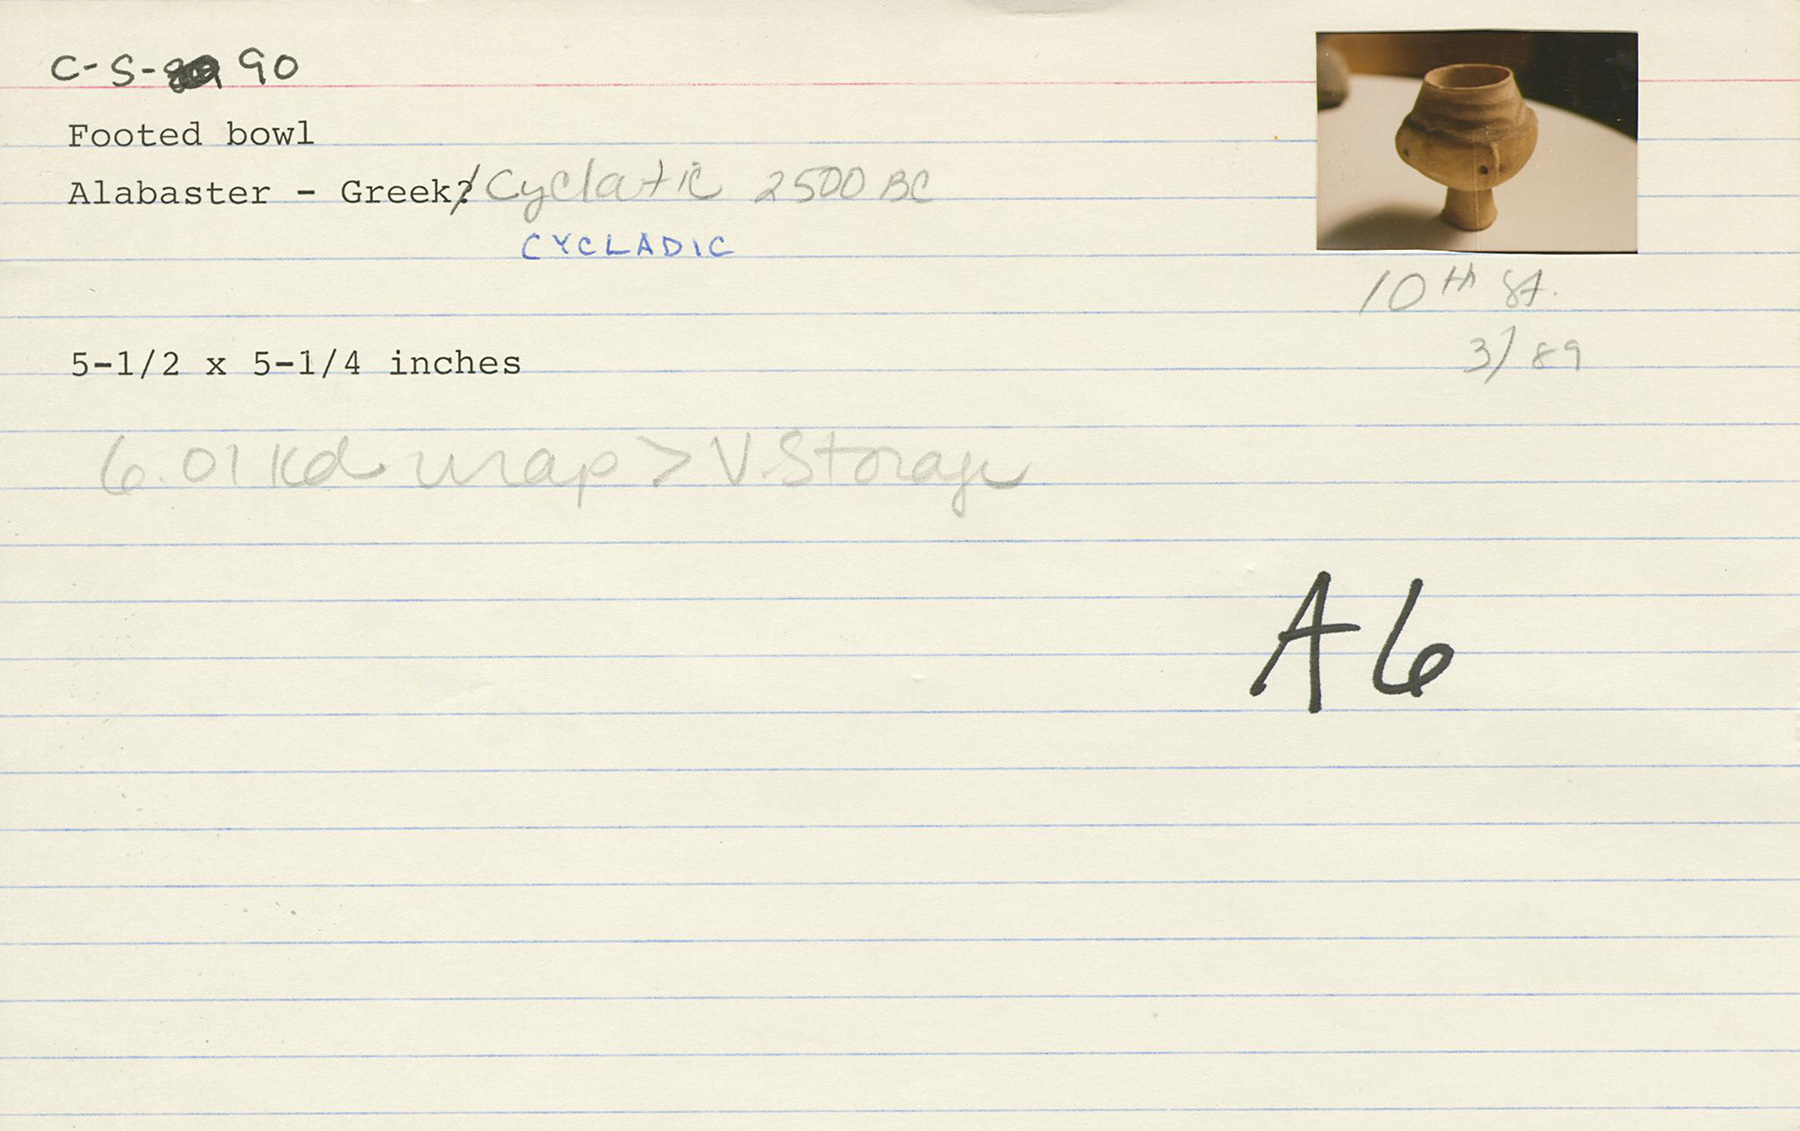 C-S- 90
Footed bowl
Alabaster - Greek?/Cyclatic 2500 BC
CYCLADIC
10th St.
3/89
5-1/2 x 5-1/4 inches
6.01 Kd wrap > V. Storage
A6